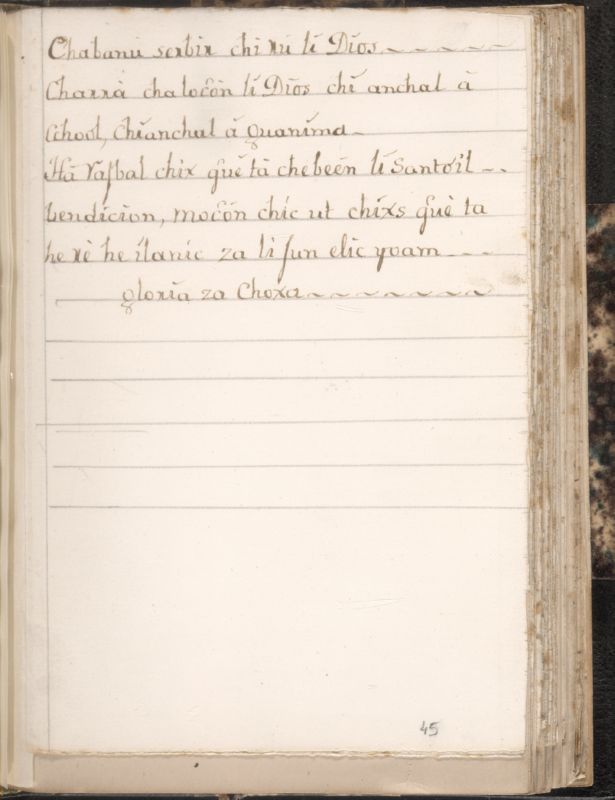 Chabanù serbir chi rú lí Dios
Charrà chalocôn lí Dios chí anchal á
Cchool, chíanchal á quaníma
Há rasbal chix guêtà chebeén lí Santóil
bendicion, mocôn chíc ut chíxs guè ta
he rè he ílaníc za li jun elic yoam
gloria za Choxa
45